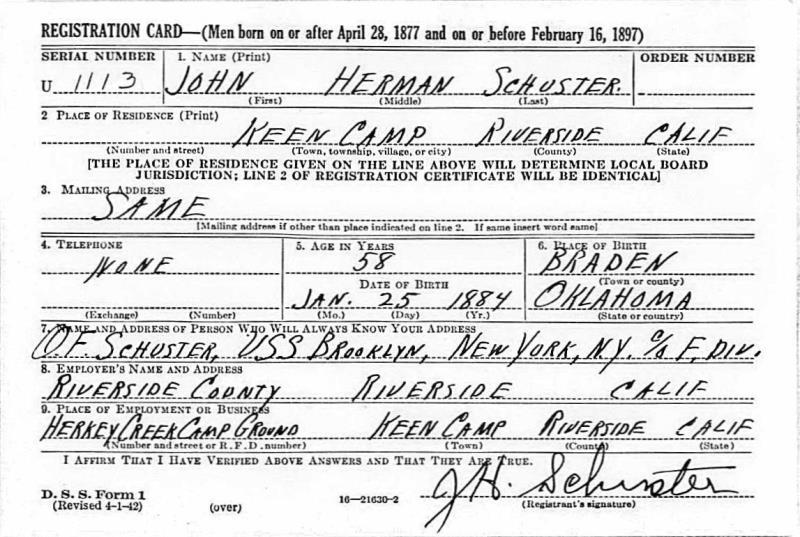 REGISTRATION CARD—(Men born on or after April 28, 1877 and on or before February 16, 1897)
SERIAL NUMBER 1. NAME (Print) ORDER NUMBER
U 1113 JOHN HERMAN SCHUSTER.
(First) (Middle) (Last)
2 PLACE OF RESIDENCE (Print)
KEEN CAMP RIVERSIDE CALIF
(Number and street) (Town, township, village, or city) (County) (State)
[THE PLACE OF RESIDENCE GIVEN ON THE LINE ABOVE WILL DETERMINE LOCAL BOARD
JURISDICTION; LINE 2 OF REGISTRATION CERTIFICATE WILL BE IDENTICAL]
3. MAILING ADDRESS
SAME
[Mailing address if other than place indicated on line 2. If same insert word same]
4. TELEPHONE 5. AGE IN YEARS 6. PLACE OF BIRTH
NONE 58 BRADEN
DATE OF BIRTH (Town or county)
JAN. 25 1884 OKLAHOMA
(Exchange) (Number) (Mo.) (Day) (Yr.) (State or country)
7. NAME AND ADDRESS OF PERSON WHO WILL ALWAYS KNOW YOUR ADDRESS
O.F. SCHUSTER, USS BROOKLYN, NEW YORK, N.Y. c/o F. DIV.
8. EMPLOYER'S NAME AND ADDRESS
RIVERSIDE COUNTY RIVERSIDE CALIF
9. PLACE OF EMPLOYMENT OR BUSINESS
HERKEY CREEK CAMP GROUND KEEN CAMP RIVERSIDE CALIF
(Number and street or R. F. D. number) (Town) (County) (State)
I AFFIRM THAT I HAVE VERIFIED ABOVE ANSWERS AND THAT THEY ARE TRUE.
D. S. S. Form 1
(Revised 4-1-42) (over) 16—21630-2
J.H. Schuster
(Registrant's signature)